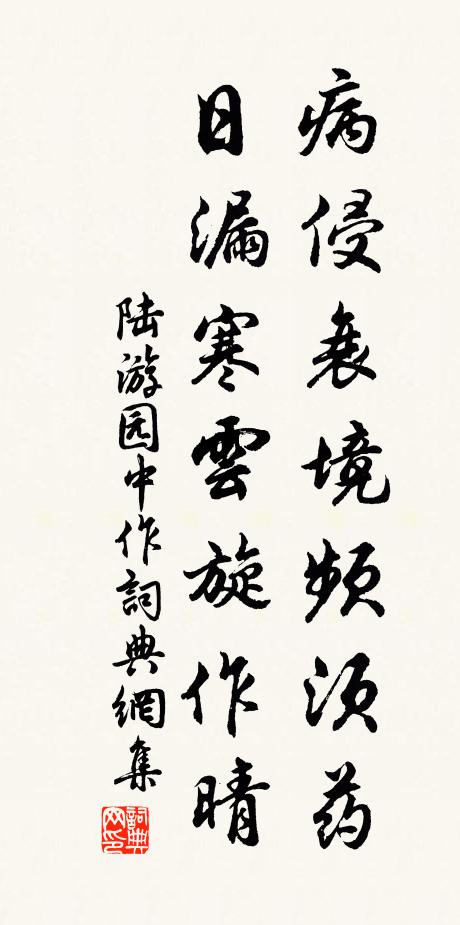 病侵衰境頻須药
日漏寒雲旋作晴
陆游园中作詞典網集
詞典
网印